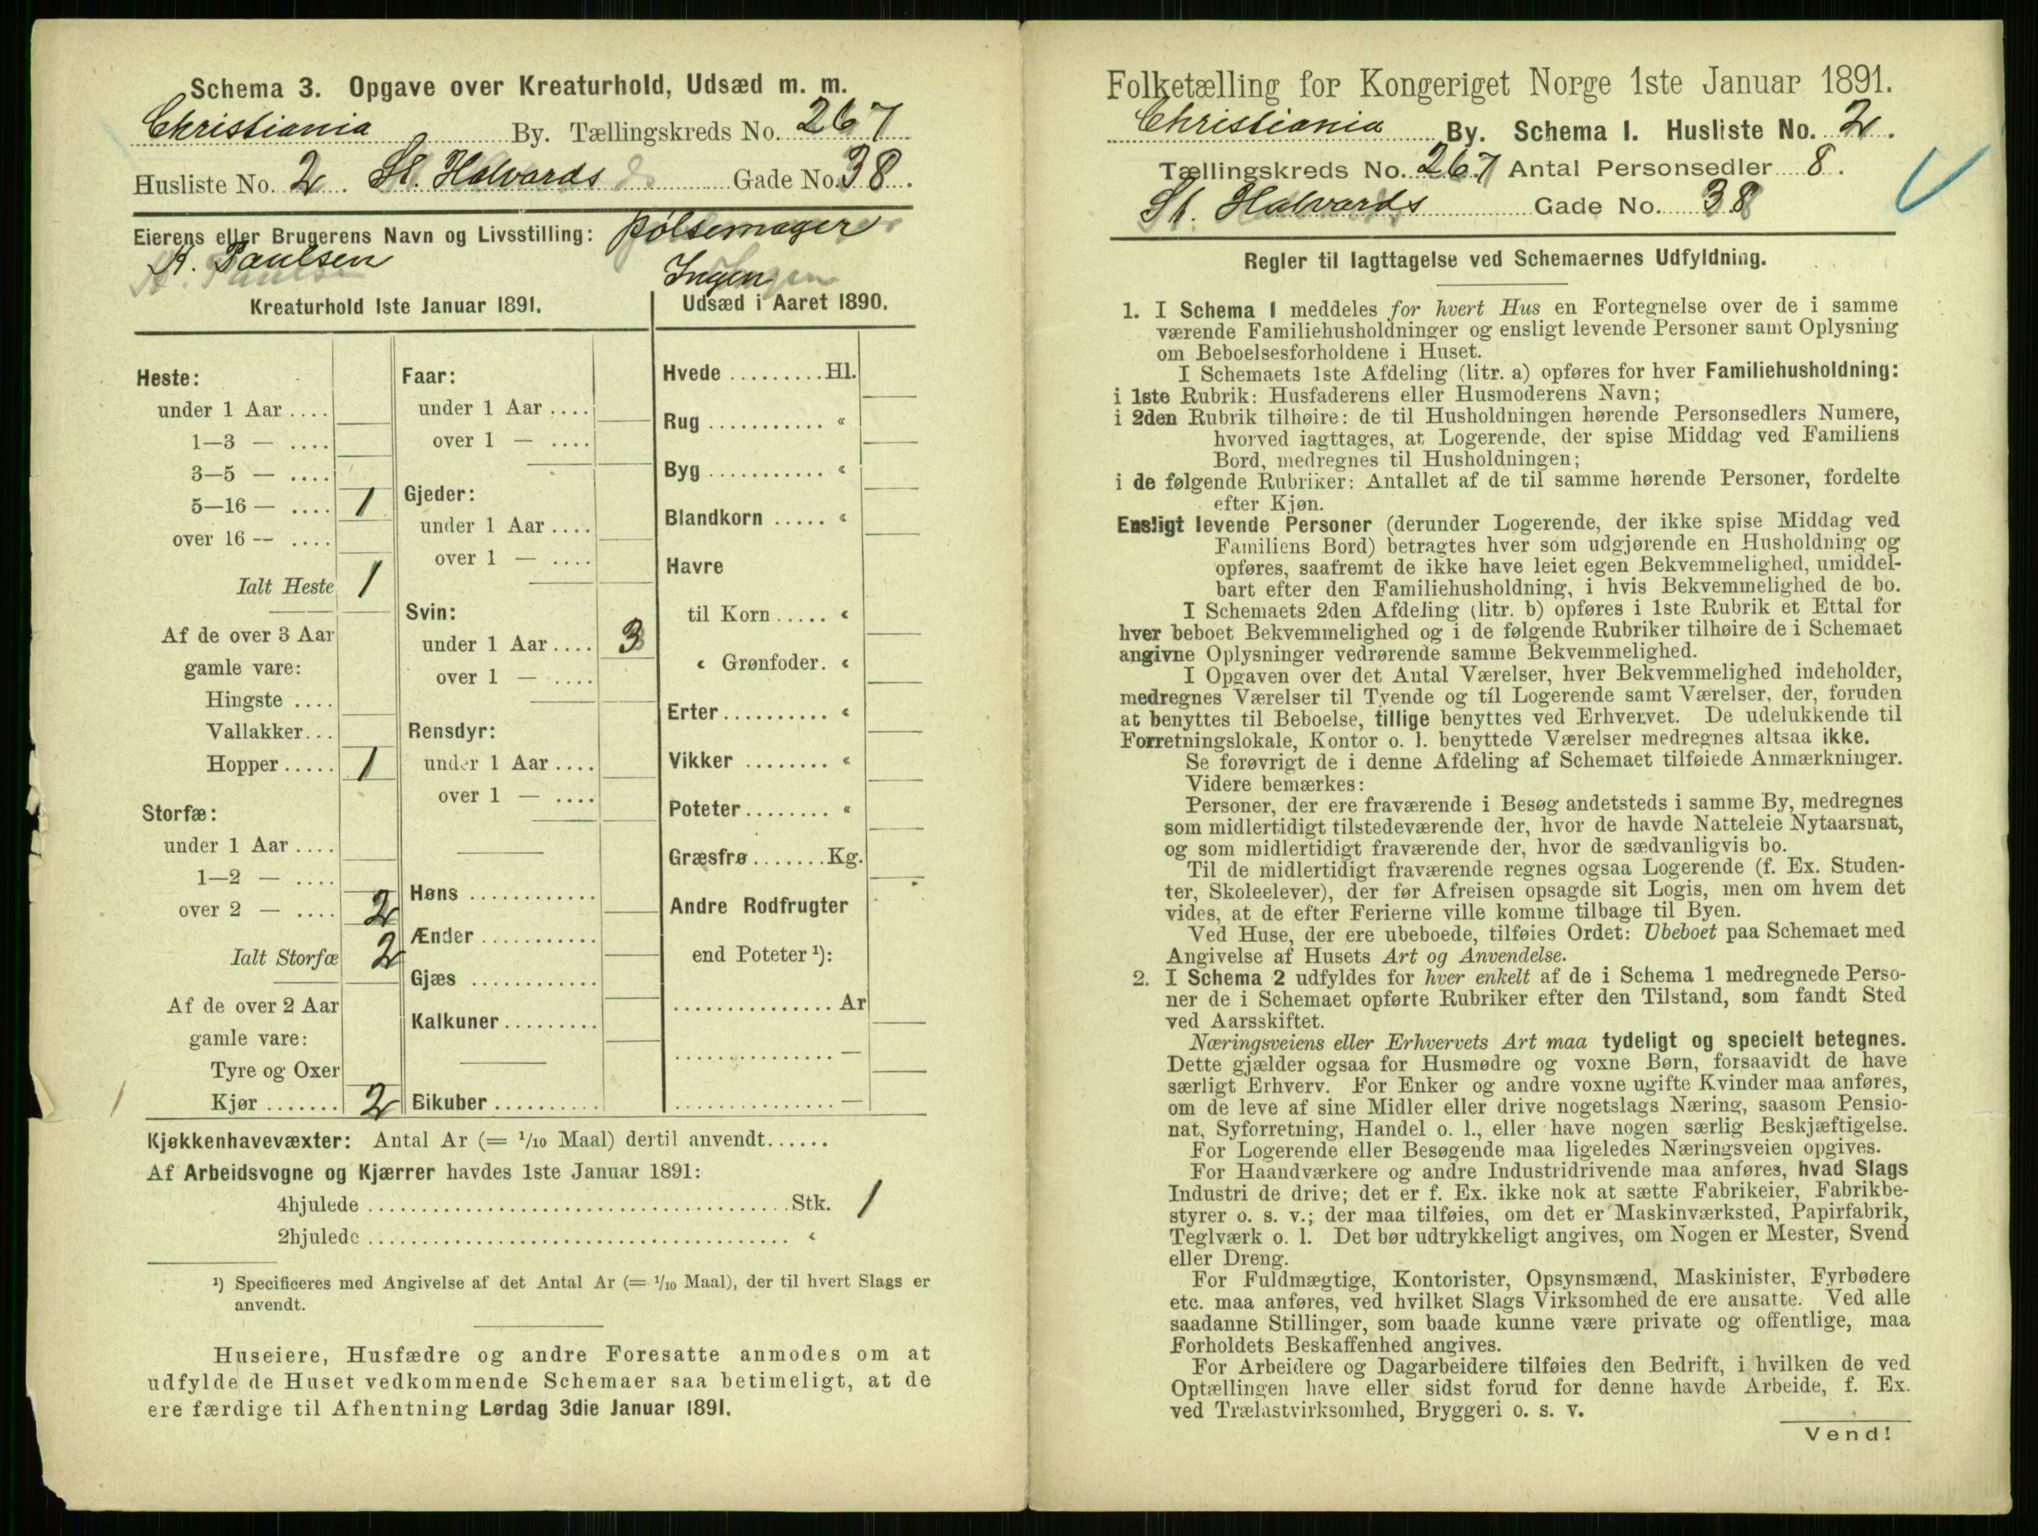 Schema 3. Opgave over Kreaturhold, Udsæd m. m.
Christiania By. Tællingskreds No. 267
Husliste No. 2. St. Halvards Gade No. 38.
Eierens eller Brugerens Navn og Livsstilling: Pølsemager
K. Paulsen
Ingen
Kreaturhold 1ste Januar 1891.
Udsæd i Aaret 1890.
Heste:
under 1 Aar ....
1—3 — ....
3—5 — ....
5—16 — .... 1
over 16 — ....
Ialt Heste 1
Af de over 3 Aar
gamle vare:
Hingste ....
Vallakker...
Hopper ..... 1
Storfæ:
under 1 Aar ....
1—2 — ....
over 2 — .... 2
Ialt Storfæ 2
Af de over 2 Aar
gamle vare:
Tyre og Oxer
Kjør ....... 2
Faar:
under 1 Aar ....
over 1 — ....
Gjeder:
under 1 Aar ....
over 1 — ....
Svin:
under 1 Aar .... 3
over 1 — ....
Rensdyr:
under 1 Aar ....
over 1 — ....
Høns ............
Ænder ...........
Gjæs ............
Kalkuner .........
Bikuber ..........
Hvede ......... Hl.
Rug ........... «
Byg ........... «
Blandkorn ..... «
Havre
til Korn ..... «
« Grønfoder. «
Erter .......... «
Vikker ........ «
Poteter ........ «
Græsfrø ....... Kg.
Andre Rodfrugter
end Poteter ¹):
............... Ar
............... —
............... —
Kjøkkenhavevæxter: Antal Ar (= 1/10 Maal) dertil anvendt......
Af Arbeidsvogne og Kjærrer havdes 1ste Januar 1891:
4hjulede ........................................ Stk. 1
2hjulede ........................................ «
¹) Specificeres med Angivelse af det Antal Ar (= 1/10 Maal), der til hvert Slags er
anvendt.
Huseiere, Husfædre og andre Foresatte anmodes om at
udfylde de Huset vedkommende Schemaer saa betimeligt, at de
ere færdige til Afhentning Lørdag 3die Januar 1891.
Folketælling for Kongeriget Norge 1ste Januar 1891.
Christiania By. Schema 1. Husliste No. 2.
Tællingskreds No. 267 Antal Personsedler 8.
St. Halvards Gade No. 38
Regler til Iagttagelse ved Schemaernes Udfyldning.
1. I Schema 1 meddeles for hvert Hus en Fortegnelse over de i samme
værende Familiehusholdninger og ensligt levende Personer samt Oplysning
om Beboelsesforholdene i Huset.
I Schemaets 1ste Afdeling (litr. a) opføres for hver Familiehusholdning:
i 1ste Rubrik: Husfaderens eller Husmoderens Navn;
i 2den Rubrik tilhøire: de til Husholdningen hørende Personsedlers Numere,
hvorved iagttages, at Logerende, der spise Middag ved Familiens
Bord, medregnes til Husholdningen;
i de følgende Rubriker: Antallet af de til samme hørende Personer, fordelte
efter Kjøn.
Ensligt levende Personer (derunder Logerende, der ikke spise Middag ved
Familiens Bord) betragtes hver som udgjørende en Husholdning og
opføres, saafremt de ikke have leiet egen Bekvemmelighed, umiddel-
bart efter den Familiehusholdning, i hvis Bekvemmelighed de bo.
I Schemaets 2den Afdeling (litr. b) opføres i 1ste Rubrik et Ettal for
hver beboet Bekvemmelighed og i de følgende Rubriker tilhøire de i Schemaet
angivne Oplysninger vedrørende samme Bekvemmelighed.
I Opgaven over det Antal Værelser, hver Bekvemmelighed indeholder,
medregnes Værelser til Tyende og til Logerende samt Værelser, der, foruden
at benyttes til Beboelse, tillige benyttes ved Erhvervet. De udelukkende til
Forretningslokale, Kontor o. l. benyttede Værelser medregnes altsaa ikke.
Se forøvrigt de i denne Afdeling af Schemaet tilføiede Anmærkninger.
Videre bemærkes:
Personer, der ere fraværende i Besøg andetsteds i samme By, medregnes
som midlertidigt tilstedeværende der, hvor de havde Natteleie Nytaarsnat,
og som midlertidigt fraværende der, hvor de sædvanligvis bo.
Til de midlertidigt fraværende regnes ogsaa Logerende (f. Ex. Studen-
ter, Skoleelever), der før Afreisen opsagde sit Logis, men om hvem det
vides, at de efter Ferierne ville komme tilbage til Byen.
Ved Huse, der ere ubeboede, tilføies Ordet: Ubeboet paa Schemaet med
Angivelse af Husets Art og Anvendelse.
2. I Schema 2 udfyldes for hver enkelt af de i Schema 1 medregnede Perso-
ner de i Schemaet opførte Rubriker efter den Tilstand, som fandt Sted
ved Aarsskiftet.
Næringsveiens eller Erhvervets Art maa tydeligt og specielt betegnes.
Dette gjælder ogsaa for Husmødre og voxne Børn, forsaavidt de have
særligt Erhverv. For Enker og andre voxne ugifte Kvinder maa anføres,
om de leve af sine Midler eller drive nogetslags Næring, saasom Pensio-
nat, Syforretning, Handel o. l., eller have nogen særlig Beskjæftigelse.
For Logerende eller Besøgende maa ligeledes Næringsveien opgives.
For Haandværkere og andre Industridrivende maa anføres, hvad Slags
Industri de drive; det er f. Ex. ikke nok at sætte Fabrikeier, Fabrikbe-
styrer o. s. v.; der maa tilføies, om det er Maskinværksted, Papirfabrik,
Teglværk o. l. Det bør udtrykkeligt angives, om Nogen er Mester, Svend
eller Dreng.
For Fuldmægtige, Kontorister, Opsynsmænd, Maskinister, Fyrbødere
etc. maa anføres, ved hvilket Slags Virksomhed de ere ansatte. Ved alle
saadanne Stillinger, som baade kunne være private og offentlige, maa
Forholdets Beskaffenhed angives.
For Arbeidere og Dagarbeidere tilføies den Bedrift, i hvilken de ved
Optællingen have eller sidst forud for denne havde Arbeide, f. Ex.
ved Trælastvirksomhed, Bryggeri o. s. v.
Vend!